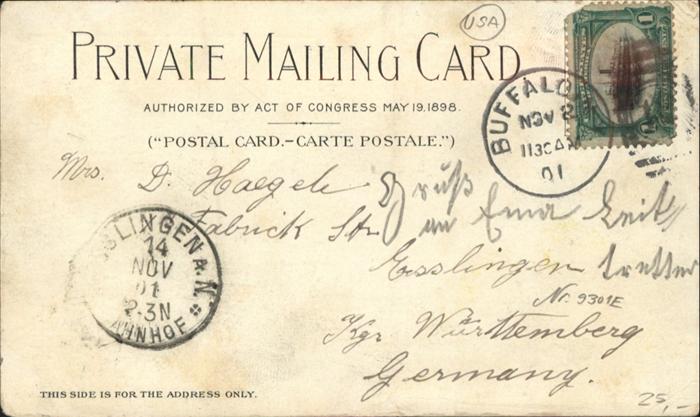 USA
PRIVATE MAILING CARD
AUTHORIZED BY ACT OF CONGRESS MAY 19.1898.
("POSTAL CARD.-CARTE POSTALE.")
BUFFALO
NOV 2
1130 AM
01
1
1
Mrs. D. Haegele
Gruß
Fabrick Str
an
Esslingen
Nr. 9301E
Kgr Württemberg
Germany.
SLINGEN A.N.
14
NOV
01
2-3N
AHNHOF
THIS SIDE IS FOR THE ADDRESS ONLY.
25,-